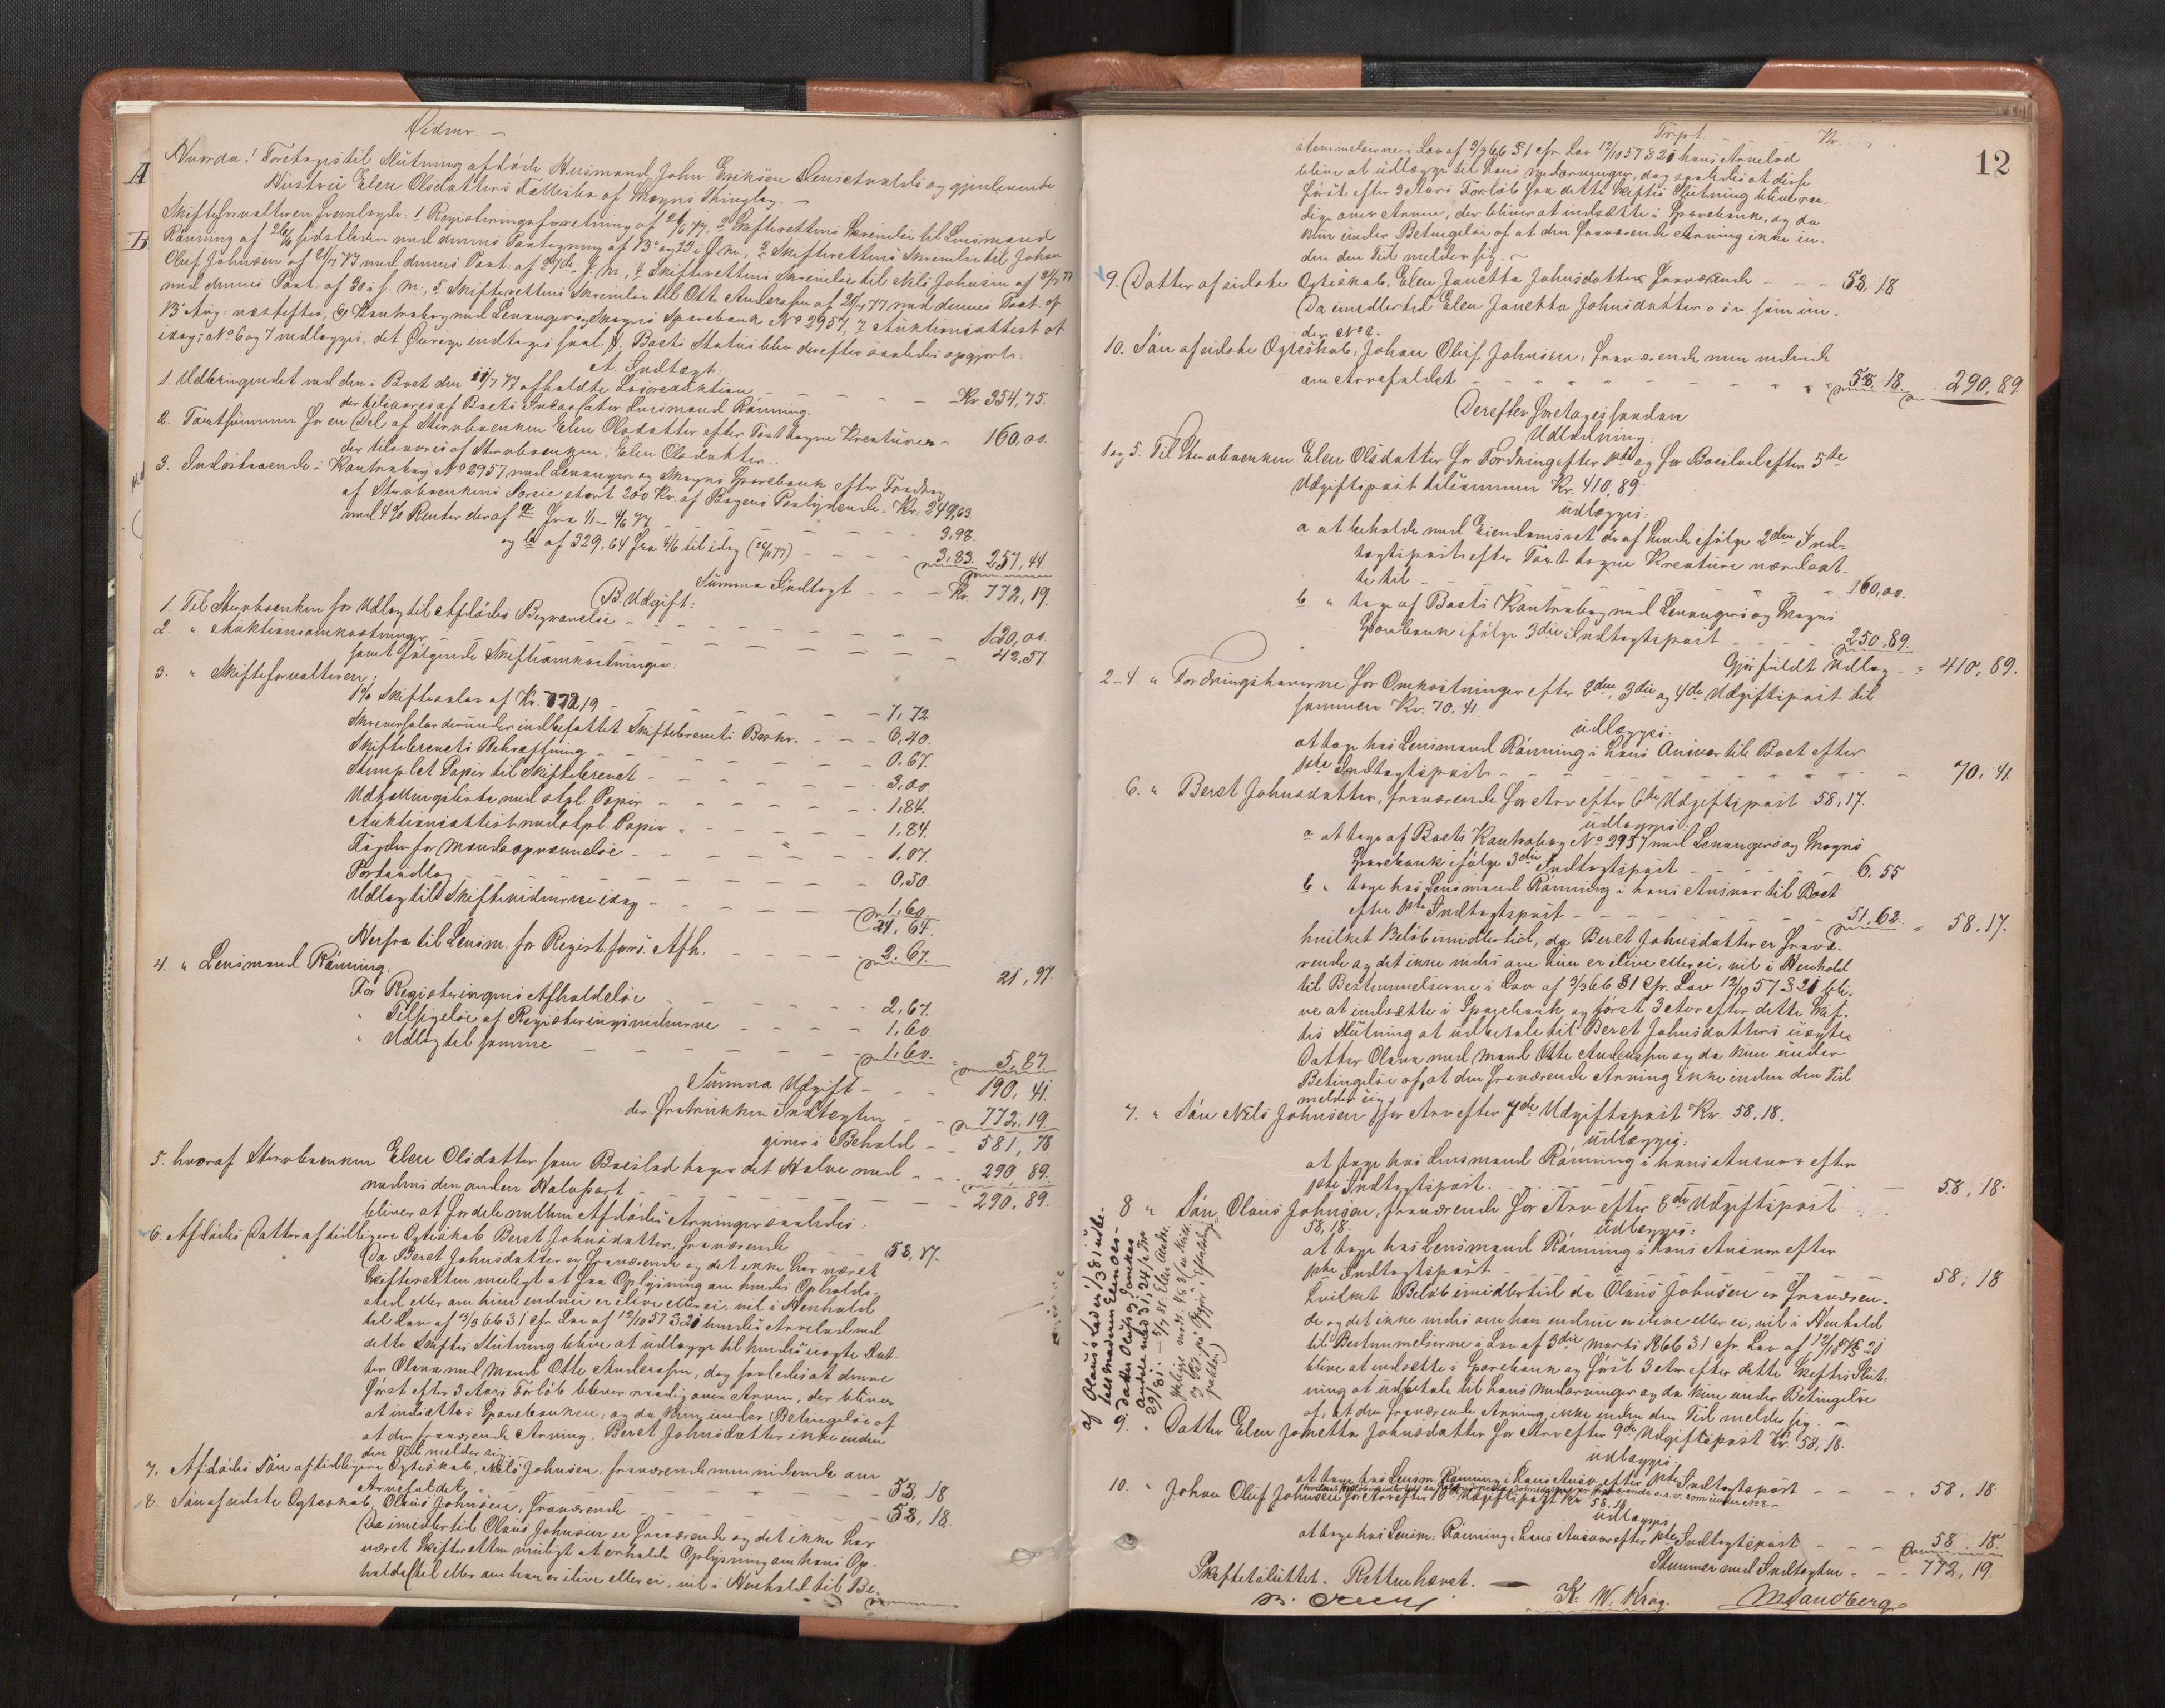 Vidnr. —
A
Hvorda! Foretoges til Slutning afdøde Husmand John Eriksen og gjenlevende
Hustru Elen Olsdatters Fællesbo af Skogns Thinglag. —
B
Skifteforvalteren fremlagde: 1 Registeringsforretning af 12/6 77, 2 Skifterettens Skrivelse til Lensmand
Rønning af 26/6 sidstleden med dennes Paategning af 13 og 19 i f. m., 3 Skifterettens Skrivelse til Johan
Oluf Johnsen af 21/7 77 med dennes Paat. af 27de f. m., 4 Skifterettens Skrivelse til Nils Johnsen af 21/7 77
med dennes Paat. af 30 i f. m., 5 Skifterettens Skrivelse til Otte Anderssen af 21/7 77 med dennes Paat. af
13 Aug. næstefter, 6 Kontrabog med Levanger og Skogns Sparebank No 2957, 7 Auktionsattest af
idag; No 6 og 7 vedlægges, det Øvrige indtages saal. f. Boets Status blev derefter saaledes opgjort:
A. Indtægt.
1. Udbringendet ved den i Boet den 11/7 77 afholdte Løsøreauktion — Kr. 354,75.
der tilsvares af Boets Incassator Lensmand Rønning.
2. Taxtsummen for en Del af Stervboenken Elen Olsdatter efter Taxt tagne Kreaturer — 160,00.
der tilsvares af Stervboenken, Elen Olsdatter.
3. Indestaaende i Kontrabog No 2957 med Levanger og Skogns Sparebank efter Fradrag
af Stervboenkens Søreie stort 200 Kr. af Bogens Paalydende, Kr. 249,63
med 4% Renter deraf a fra 1/1 – 4/6 77 — 3,98.
og b af 329,64 fra 4/6 til idag — 3,83. 257,44.
Summa Indtægt — Kr. 772,19.
B. Udgift:
1. Til Stervboenken for Udlæg til Afdødes Begravelse — 120,00.
2. " Auktionsomkostninger — 42,57.
samt følgende Skifteomkostninger:
3. " Skifteforvalteren:
1% Skiftesalær af Kr. 772,19 — 7,72
Skriversalær derunder indbefattet Skiftebrevets Beskr. — 6,40.
Skiftebrevets Bekræftning — 0.67.
Stemplet Papir til Skiftebrevet — 3,00.
Udtællingsliste med stpl. Papir — 1,84.
Auktionsattest med stpl. Papir — 1,84.
Tægten for Mandsopnævnelse — 1,07.
Portoudlæg — 0,50.
Udlæg til Skiftevidnerne idag — 1,60.
24,64.
Herfra til Lensm. for Regist. forr. Afh. — 2,67.
21,97.
4. " Lensmand Rønning.
For Registeringens Afholdelse — 2,67.
" Tilsigelse af Registeringsvidnerne — 1,60.
" Udlæg til samme — 1,60.
5,87.
Summa Udgift — 190,41.
der fratrukken Indtægten — 772,19
giver i Behold — 581,78
5. hvoraf Stervboenken Elen Olsdatter som Boeslod tager det Halve med — 290,89.
medens den anden Halvpart — 290,89.
bliver at fordele mellem Afdødes Arvinger saaledes:
6. Afdødes Datter af tidligere Ægteskab Beret Johnsdatter, fraværende — 58,17.
Da Beret Johnsdatter er fraværende og det ikke har været
Skifteretten muligt at faa Oplysning om hendes Opholds-
sted eller om hun endnu er ilive eller ei, vil i Henhold
til Lov af 3/3 66 § 1 cfr. Lov af 12/10 57 § 20 hendes Arvelod ved
dette Skiftes Slutning blive at udlægge til hendes uægte Dat-
ter Olava med Mand Otte Anderssen, dog saaledes at denne
først efter 3 Aars Forløb bliver raadig over Arven, der bliver
at indsætte i Sparebanken, og da kun under Betingelse af
at den fraværende Arving, Beret Johnsdatter ikke inden
den Tid melder sig.
7. Afdødes Søn af tidligere Ægteskab, Nils Johnsen, fraværende men vidende om
Arvefaldet — 58,18
8. Søn af sidste Ægteskab, Olaus Johnsen, fraværende — 58,18.
Da imidlertid Olaus Johnsen er fraværende og det ikke har
været Skifteretten muligt at erholde Oplysning om hans Op-
holdssted eller om han er ilive eller ei, vil i Henhold til Be-
12
Trpt. Kr.
stemmelserne i Lov af 3/3 66 § 1 cfr. Lov 12/10 57 § 20 hans Arvelod
blive at udlægge til hans Medarvinger, dog saaledes at disse
først efter 3 Aars Forløb fra dette Skiftes Slutning blive raa-
dige over Arven, der bliver at indsætte i Sparebank, og da
kun under Betingelse af at den fraværende Arving ikke in-
den den Tid melder sig. —
9. Datter af sidste Ægteskab, Elen Janetta Johnsdatter, fraværende — 58,18
Da imidlertid Elen Janetta Johnsdatter o.s.v. som un-
der No 8.
10. Søn af sidste Ægteskab, Johan Oluf Johnsen, fraværende men vidende
om Arvefaldet — 58,18. 290,89
Derefter foretages saadan
Udlodning:
1 og 5. Til Stervboenken Elen Olsdatter for Fordring efter 1ste og for Boeslod efter 5te
Udgiftspost tilsammen Kr. 410,89.
udlægges:
a at beholde med Eiendomsret de af hende ifølge 2den Ind-
tægtspost efter Taxt tagne Kreature værdsat-
te til — 160,00.
b " tage af Boets Kontrabog med Levangers og Skogns
Sparebank ifølge 3die Indtægtspost — 250,89.
Gjør fuldt Udlæg — 410,89.
2–4. " Fordringshaverne for Omkostninger efter 2den, 3die og 4de Udgiftspost til
sammen Kr. 70,41
udlægges:
at tage hos Lensmand Rønning i hans Ansvar til Boet efter
1ste Indtægtspost — 70,41
6. " Beret Johnsdatter, fraværende for Arv efter 6te Udgiftspost 58,17.
udlægges:
a at tage af Boets Kontrabog No 2957 med Levangers og Skogns
Sparebank ifølge 3die Indtægtspost — 6,55
b " tage hos Lensmand Rønning i hans Ansvar til Boet
efter 1ste Indtægtspost — 51,62. 58,17.
hvilket Beløb imidlertid, da Beret Johnsdatter er fravæ-
rende og det ikke vides om hun er ilive eller ei, vil i Henhold
til Bestemmelserne i Lov af 3/3 66 § 1 cfr. Lov 12/10 57 § 20 bli-
ve at indsætte i Sparebank og først 3 Aar efter dette Skif-
tes Slutning at udbetale til Beret Johnsdatters uægte
Datter Olava med Mand Otte Anderssen og da kun under
Betingelse af, at den fraværende Arving ikke inden den Tid
melder sig.
7. " Søn Nils Johnsen for Arv efter 7de Udgiftspost Kr. 58,18.
udlægges:
at tage hos Lensmand Rønning i hans Ansvar efter
1ste Indtægtspost. — 58,18.
8 " Søn Olaus Johnsen, fraværende for Arv efter 8de Udgiftspost
58,18. udlægges:
at tage hos Lensmand Rønning i hans Ansvar efter
1ste Indtægtspost — 58,18
hvilket Beløb imidlertid da Olaus Johnsen er fraværen-
de og det ikke vides om han endnu er ilive eller ei, vil i Henhold
til Bestemmelserne i Lov af 3die Marts 1866 § 1 cfr. Lov af 12/10 57 § 20
blive at indsætte i Sparebank og først 3 Aar efter dette Skiftes Slut-
ning at udbetale til hans Medarvinger og da kun under Betingelse
af, at den fraværende Arving ikke inden den Tid melder sig. —
9. " Datter Elen Janetta Johnsdatter for Arv efter 9de Udgiftspost Kr. 58,18.
udlægges:
at tage hos Lensm. Rønning i hans Ansv. efter 1ste Indtægtspost — 58,18.
o.s.v. som under No 8. —
10. " Johan Oluf Johnsen for Arv efter 10de Udgiftspost Kr. 58,18
udlægges
at tage hos Lensm. Rønning i hans Ansvar efter 1ste Indtægtspost — 58,18.
Stemmer med Indtægten — 772,19.
Skiftet sluttet. Retten hævet. —
K. W. Krog. M Sandberg